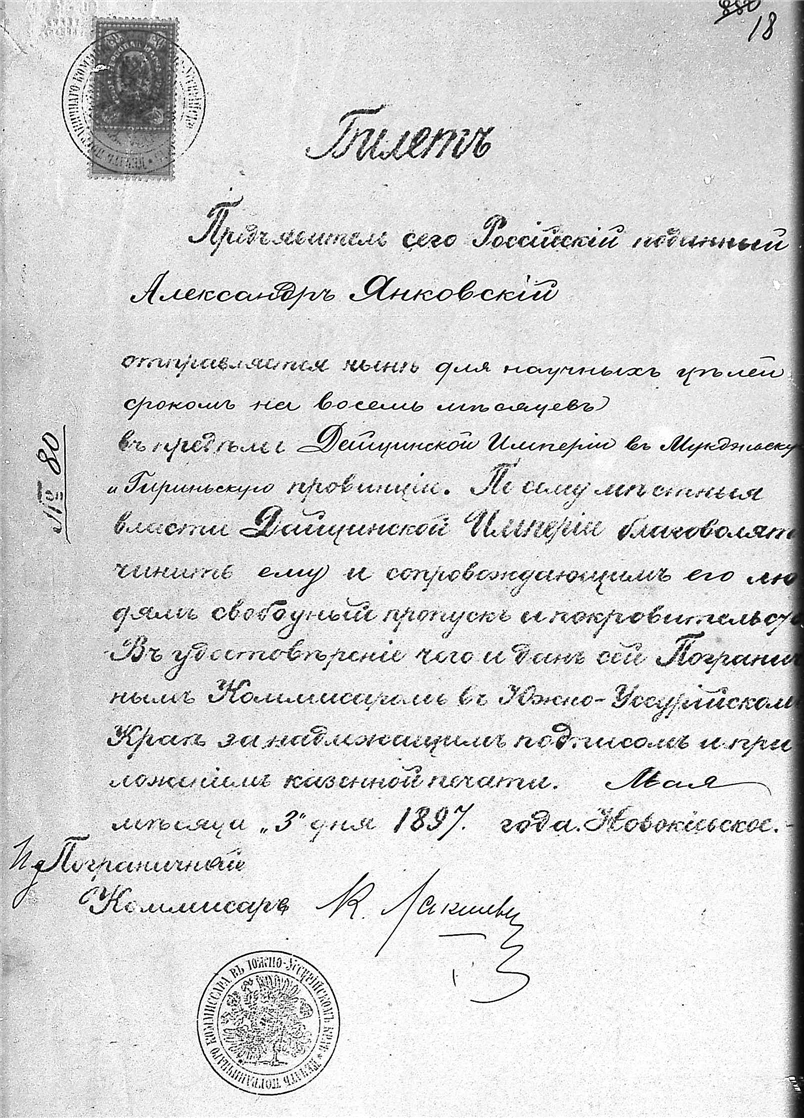 880
18
Билетъ
Предъявитель сего Россійскій подданный
Александръ Янковскій
отправляется нынѣ для научныхъ цѣлей
срокомъ на восемь мѣсяцевъ
въ предѣлы Дайцинской Имперіи въ
и Гириньскую провинціи. По сему мѣстныя
№ 80
власти Дайцинской Имперіи благоволятъ
чинить ему и сопровождающимъ его лю
дямъ свободный пропускъ и покровительство
Въ удостовѣреніе чего и данъ сей Погранич
нымъ Коммисаромъ въ Южно-Уссурійскомъ
Краѣ за надлежащимъ подписомъ и при
ложеніемъ казенной печати. Мая
мѣсяца „3" дня 1897. года. Новокіевское.-
И д Пограничный
Коммисаръ К.
ПЕЧАТЬ ПОГРАНИЧНАГО КОММИССАРА ВЪ ЮЖНО-УССУРІЙСКОМЪ КРАѢ